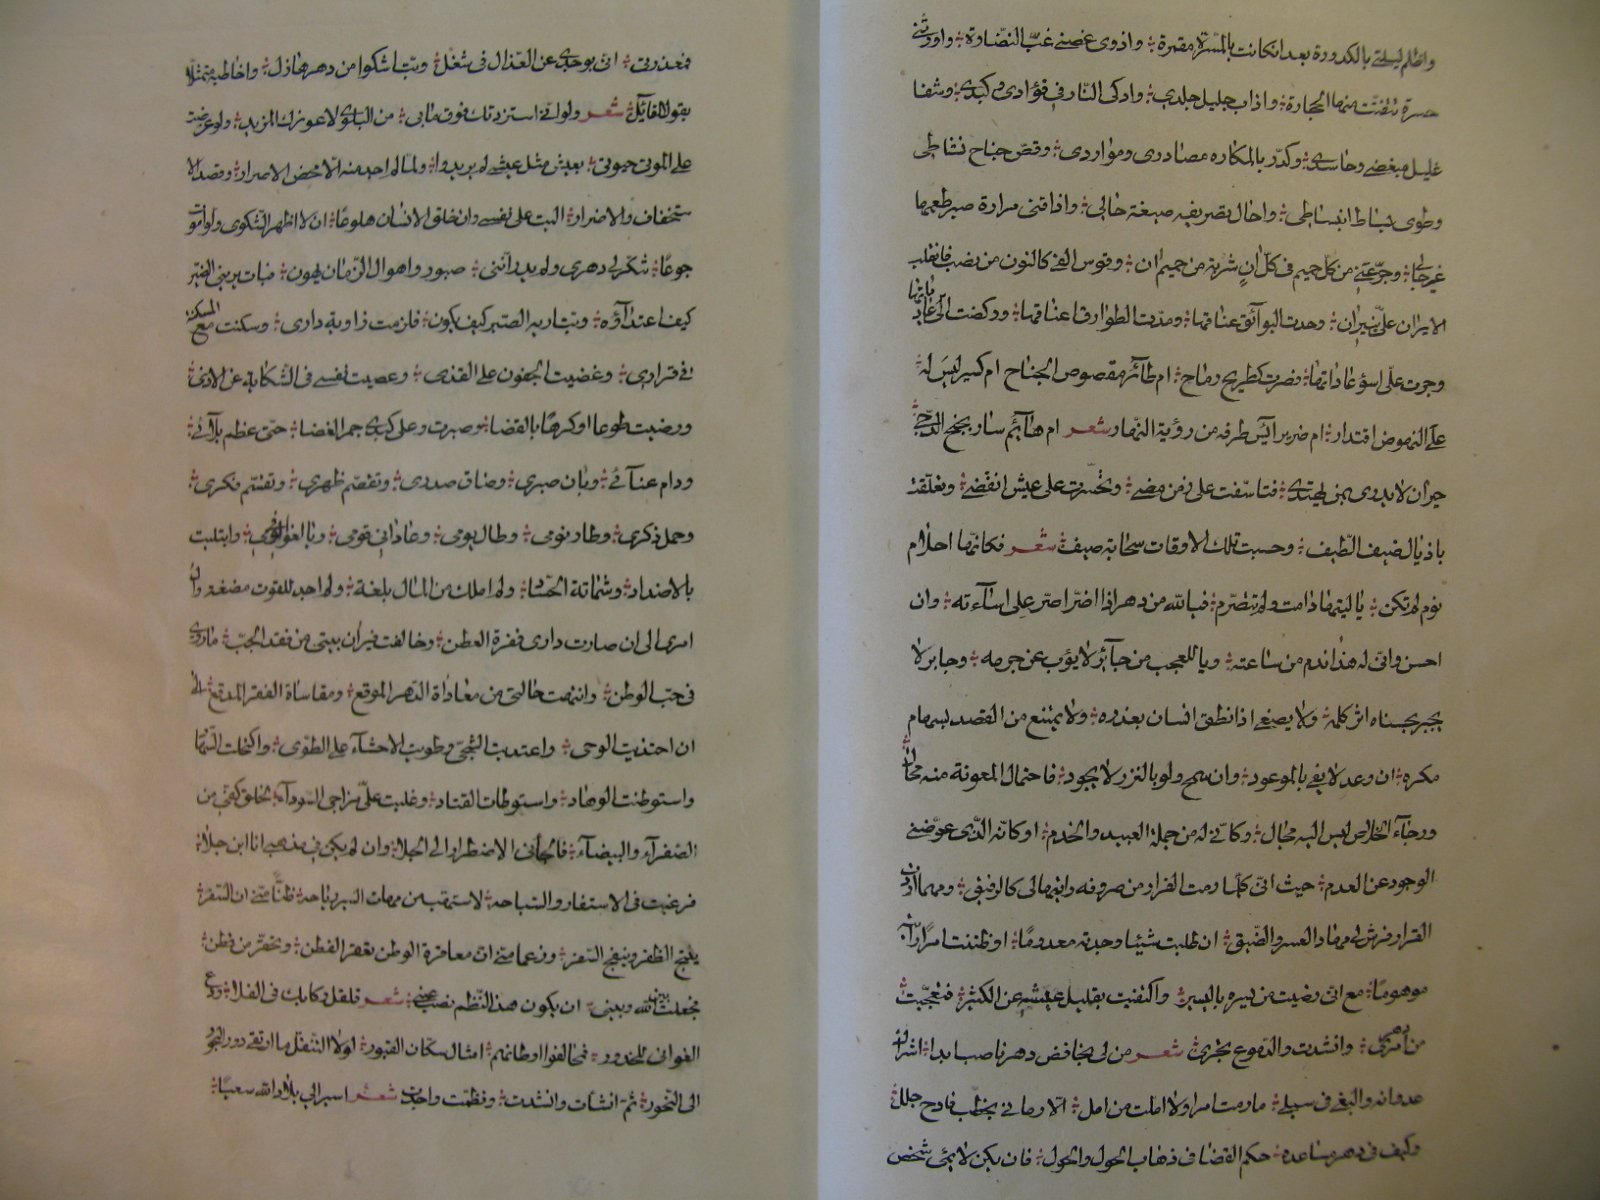 واظلم ليلتي بالكدورة بعد ان كانت بالمسرة مقمرة واذوى غصني غبّ النضارة واورثني
حسرة تتفتت منها الحجارة واذاب جليل جلدي واذكى النار في فؤادي وكبدي وشفا
غليل مبغضي وحاسدي وكدّر بالمكاره مصادري ومواردي وقصّ جناح نشاطي
وطوى بساط انبساطي واحال بتصريفه صبغة حالي واذاقني مرارة صبر طعمها
غير حالي وجرّعني من كل حميم في كل آن شربة من حميم آن وقوس الفي كالنون من نصب فانقلب
الايران عليّ نيران وحدت البوائق عناقها ومدّت الطوارق اعناقها وركضت الى غاياتها
وجرت على اسوء عاداتها فصرت كطريح رماح ام طائر مقصوص الجناح ام كسير ليس له
على النهوض اقتدار ام ضرير آيس طرفه من رؤية النهار شعر ام هائم سار بجنح الدجى
حيران لا يدرى بمن يهتدي فتاسّفت على زمن مضى وتحسرت على عيش انقضى وتعلقت
باذيال ضيف الطيف وحسبت تلك الاوقات سحابة صيف شعر فكانها احلام
نوم لم تكن يا ليتها دامت ولم تتصرم فيا لله من دهر اذا اضرّ اصرّ على اساءته وان
احسن واتى له هذا ندم من ساعته ويا للعجب من جائر لا يؤب عن جرمه وجابر لا
يجبر بحسناه اثر كلمه ولا يصغي اذا نطق انسان بعذره ولا يمتنع من القصد بسهام
مكره ان وعد لا يفي بالموعود وان سمح ولو بالنزر لا يجود فاحتمال المعونة منه محال
ورجاء الخلاص ليس اليه مجال وكاني له من جملة العبيد والخدم او كانه الذي عوّضني
الوجود عن العدم حيث اني كلما رمت الفرار من صروفه وانه مالى كالرفيق ومهما اردت
القرار فرش لي وهاد العسر والضيق ان طلبت شيئا وجدته معدوما او ظننت امرا رأيته
موهوما مع اني رضيت من يسيره باليسير واكتفيت بقليل عيشه عن الكثير فتعجبت
من امري وانشدت والدموع تجري شعر من لي بخافض دهر ناصب ابدا اشراك
عدوانه والبغي في سبلي ما رمت امرا ولا املت من امل الا رماني بخطب فادح جلل
وكيف في دهر مساعدة حكم القضا في ذهاب الحول والحول فان يكن لا يمنى شخص
فمعذرتي اني بوجدي عن العذال في شغل وبتّ اشكوا من دهر هازل واخاطبه متمثلا
بقول القائل شعر ولو اني استزدتك فوق ما بي من البلوى لاعوزك المزيد ولو عرضت
على الموتى حيوتي بعيش مثل عيشي لم يريدوا ولما لم اجد منه الا خفض الاصرار وقصد الا
ستخفاف والاضرار اليت على نفسي وان خلق الانسان هلوعا ان لا اظهر الشكوى ولو اموت
جوعا تنكر لي دهري ولم يدر انني صبور واهوال الزمان تهون فبات يريني الضر
كيف اعتداؤه وبتّ اريه الصبر كيف يكون فلزمت زاوية داري وسكنت مع المسكنة
في قراري وغضيت الجفون على القذى وعصيت نفسي في الشكاية عن الاذى
ورضيت طوعا او كرها بالقضا وصبرت وعلى كبدي جمر الغضا حتى عظم بلائي
ودام عنائي وبان صبري وضاق صدري وتقصّم ظهري وتقسّم فكري
وخمل ذكري وطار نومي وطال يومي وعاداني قومي وبالغوا في لومي وابتليت
بالاضداد وشماتة الحساد ولم املك من المال بلغة ولم اجد للقوت مضغة وآل
امري الى ان صارت داري قفرة العطن وخالفت فيران بيتي من فقد الحبّ ما روي
في حب الوطن وانتهت حالتي من معاداة الدهر الموقع ومقاساة الفقر المدقع الى
ان احتذيت الوجى واغتذيت الشجى وطويت الاحشاء على الطوى واكتحلت السها
واستوطنت الوهاد واستوطات القتاد وغلبت على مزاجي السوداء لخلو كفي من
الصفراء والبيضاء فالجأني الاضطرار الى الجلا وان لم يكن في مذهبي انا ابن جلا
فرغبت في الاسفار والسياحه لاستمتع من مهات السير رياحه ظنا مني ان السفر
ينتج الظفر وينفج السفر وزعما مني ان معاقرة الوطن تعقر الفطن وتحقر من قطن
فجعلت لله وبيني ان يكون هذا النظم نصب عيني شعر قلقل ركابك في الفلا ودع
الغواني للخدور فمحالفوا اوطانهم امثال سكان القبور لولا التنقل ما ارتقى درر البحور
الى النحور ثم انشات وانشدت ونظمت واجدت شعر اسير الي بلاد الله سعيا